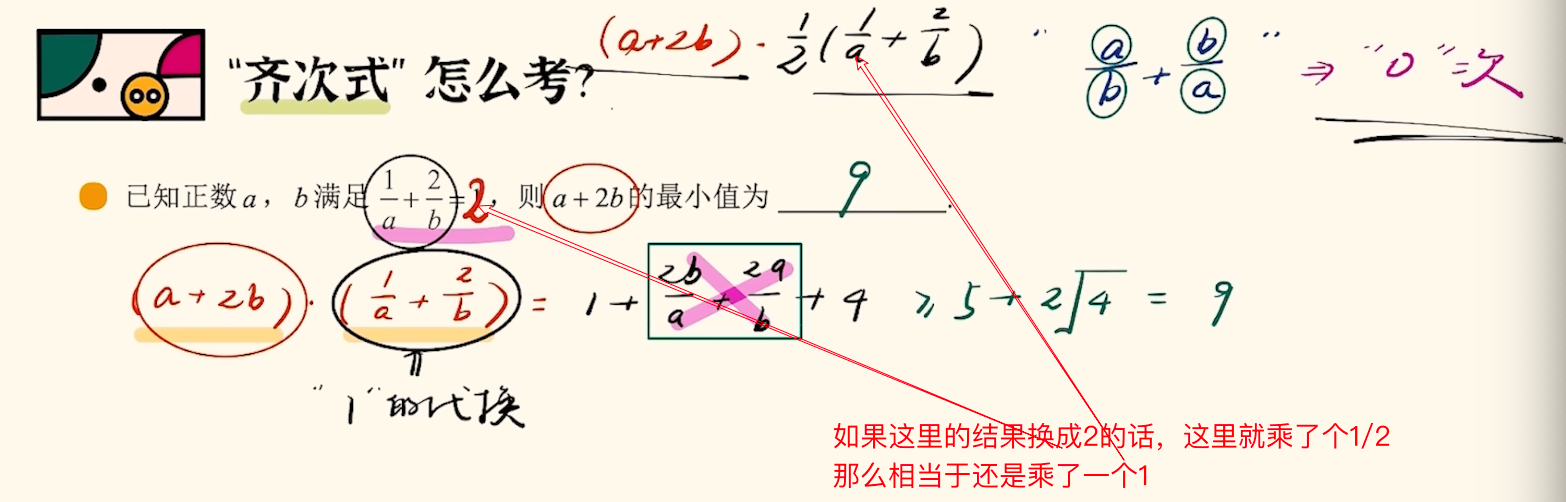 “齐次式”怎么考?
(a+2b)·1/2(1/a+2/b)
“a/b+b/a”⇒“0”次
已知正数a，b满足1/a+2/b=2，则a+2b的最小值为 9 .
(a+2b)·(1/a+2/b)=1+2b/a+2a/b+4≥5+2√4=9
⇑
“1”的代换
如果这里的结果换成2的话，这里就乘了个1/2
那么相当于还是乘了一个1